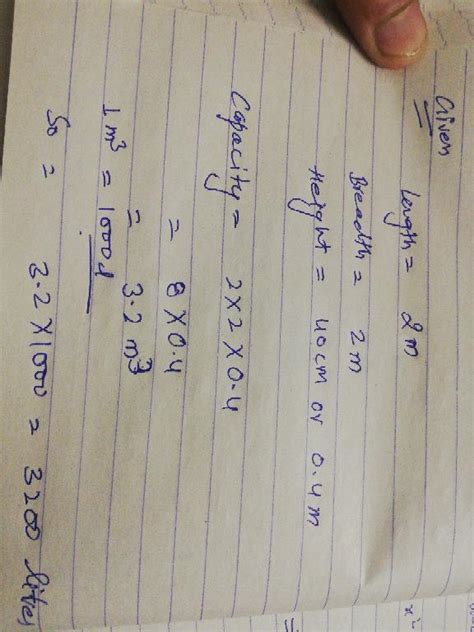 Given
Length = 2m
Breadth = 2m
Height = 40cm or 0.4m
Capacity = 2x2x0.4
= 8 X 0.4
= 3.2 m³
1 m³ = 1000 l
So = 3.2 X 1000 = 3200